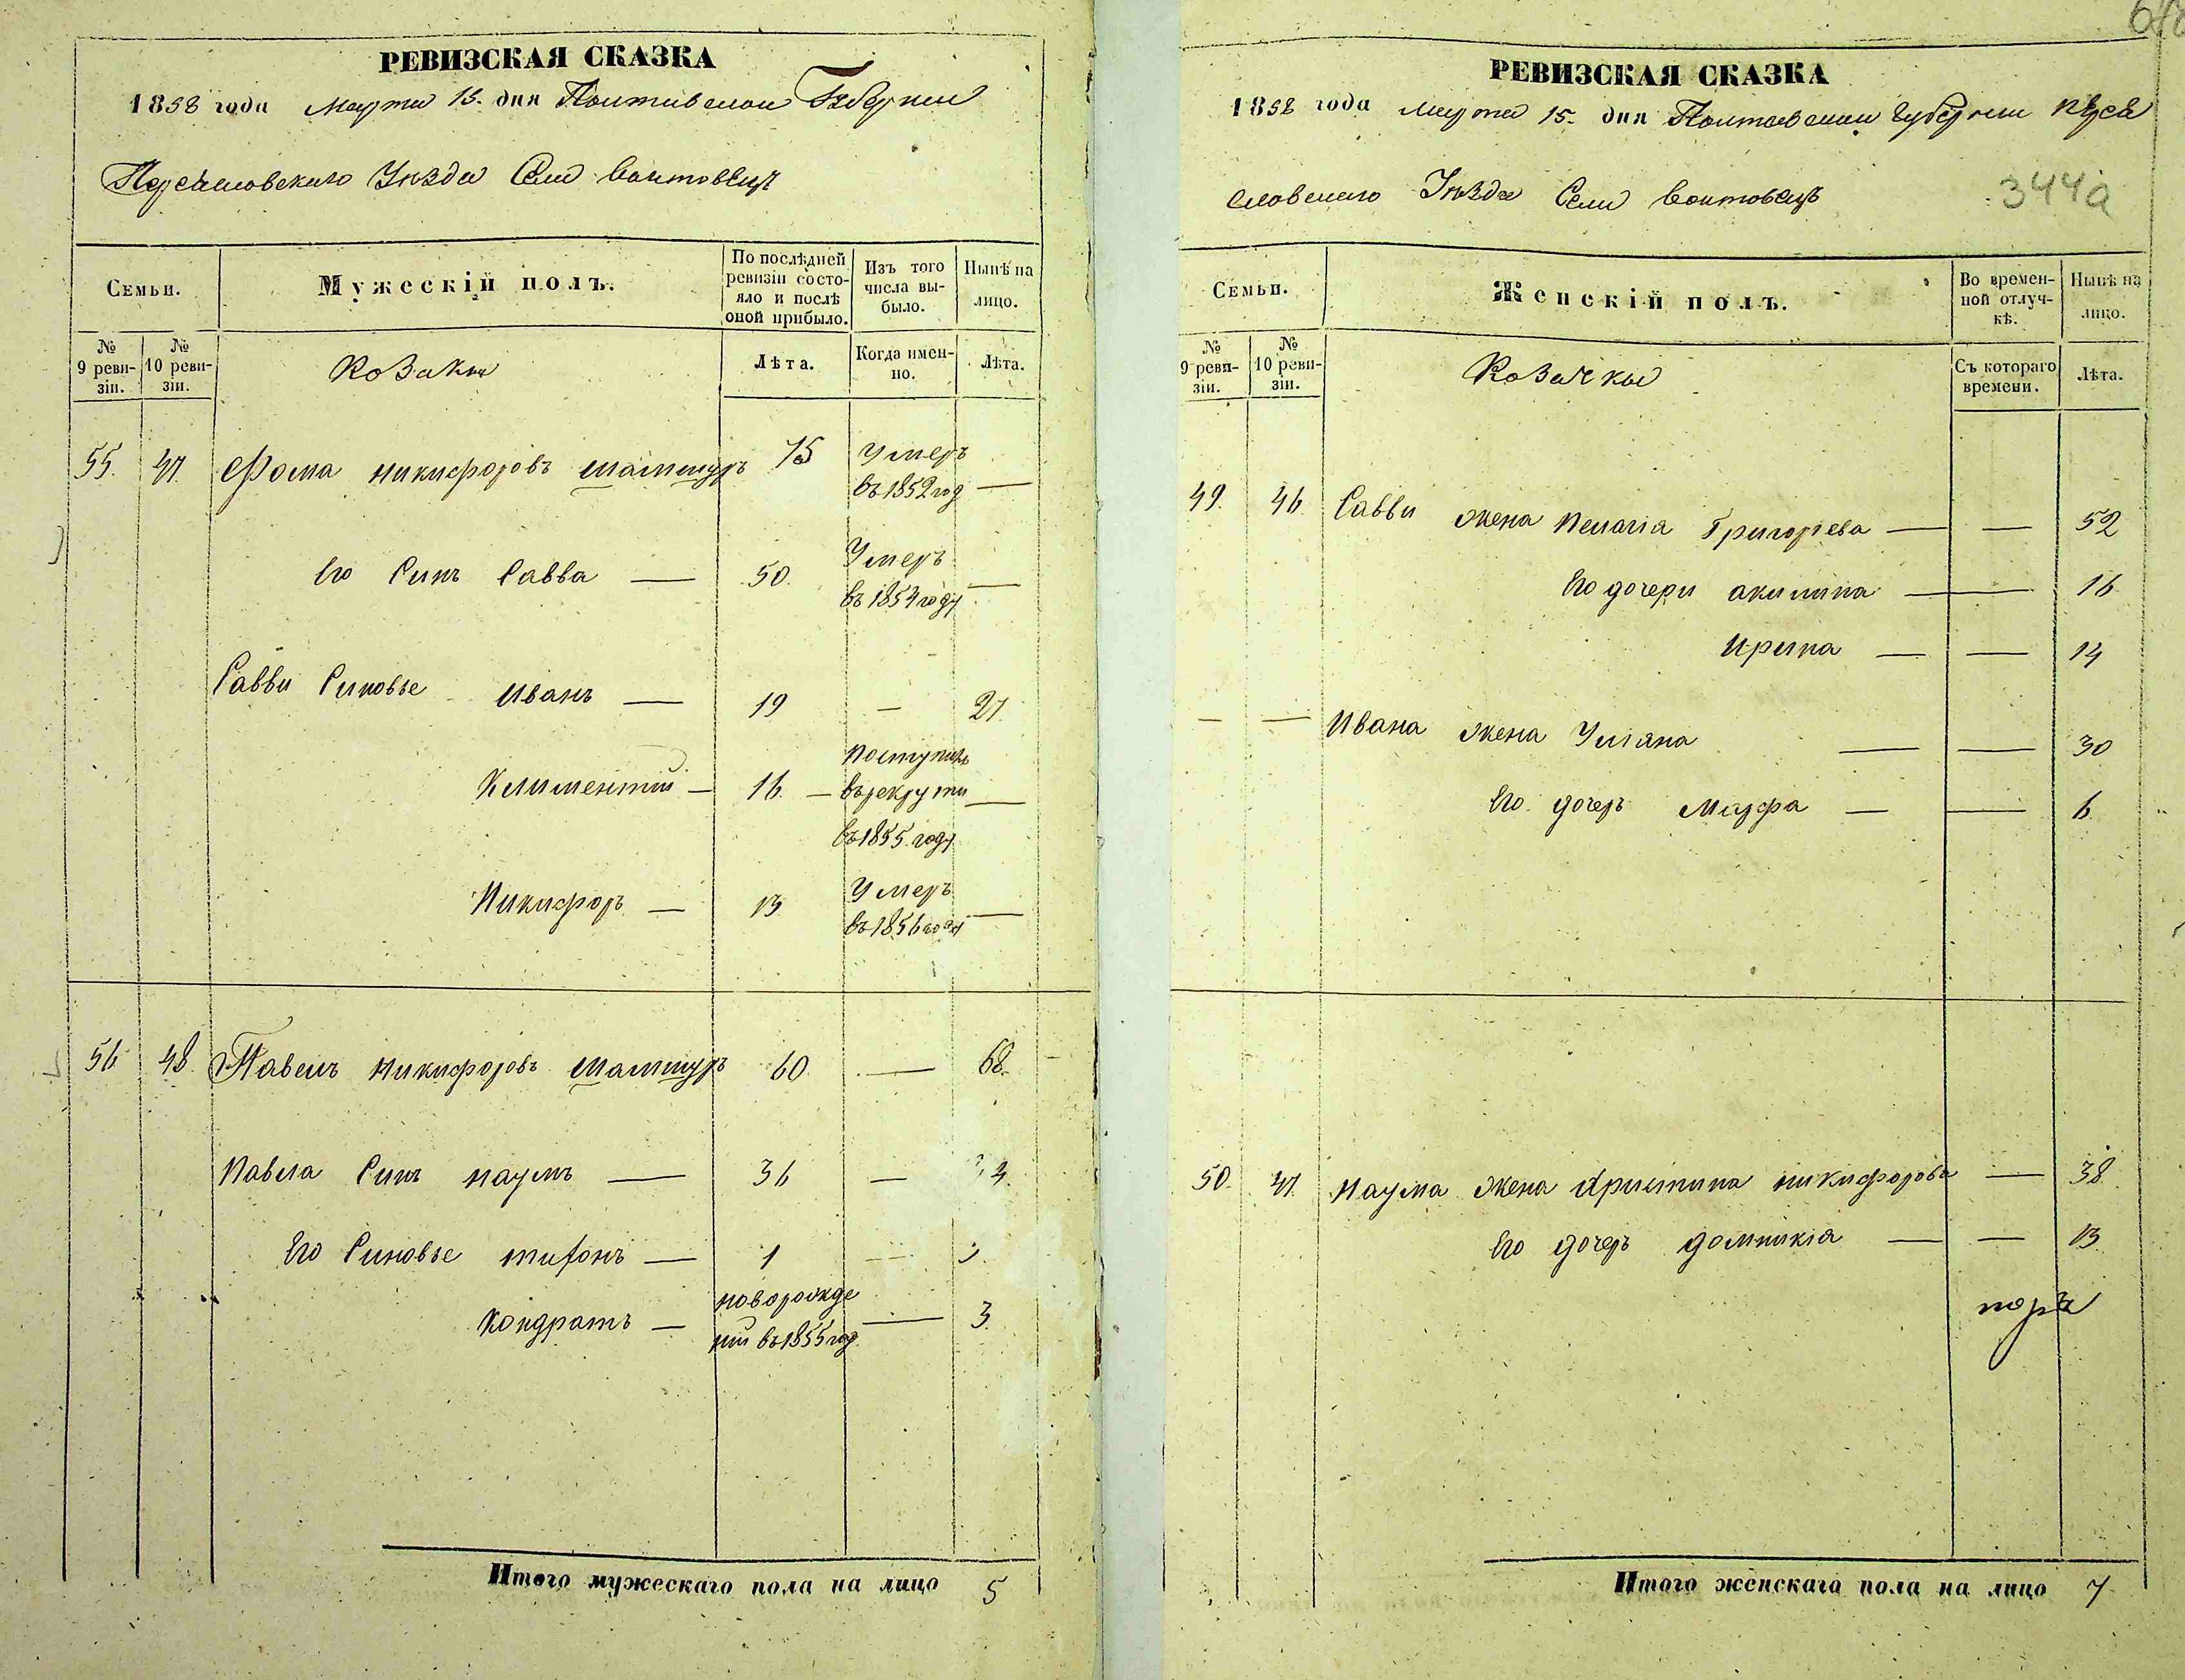 РЕВИЗСКАЯ СКАЗКА
1858 года Марта 15. дня Полтавской Губернии
Переяславского Уезда Села Войтовец
Семьи.
Мужескій полъ.
По послѣдней ревизіи состояло и послѣ оной прибыло.
Изъ того числа выбыло.
Нынѣ на лицо.
№ 9 ревизіи.
№ 10 ревизіи.
Козаки
Лѣта.
Когда именно.
Лѣта.
55. 47. Фома Никифоровъ Шамшуръ 75 Умеръ въ 1852 год —
Его Синъ Савва — 50. Умеръ въ 1854 году —
Савви Синовье Иванъ — 19 — 27.
Климентий — 16. — поступилъ въ рекрути въ 1855 году —
Никифоръ — 13 Умеръ въ 1856 году —
56 48. Павелъ Никифоровъ Шамшуръ 60 — 68.
Павла Синъ Наумъ — 36 — 4.
Его Синовье Тифонъ — 1 —
Кондратъ — новорождений въ 1855 год. — 3.
Итого мужескаго пола на лицо 5
РЕВИЗСКАЯ СКАЗКА
1858 года Марта 15. дня Полтавской Губернии Перея
словского Уезда Села Войтовець
344а
Семьи.
Женскій полъ.
Во временной отлучкѣ.
Нынѣ на лицо.
№ 9 ревизіи.
№ 10 ревизіи.
Козачки
Съ котораго времени.
Лѣта.
49. 46 Савви жена Пелагія Григоріева — — 52
Его дочери Акилина — — 16
Ирина — — 14
— — Ивана жена Уліяна — — 30
Его дочеръ Марфа — — 6
50. 47. Наума жена Христина Никифорова — 38
Его дочеръ Домникія — — 13.
Итого женскаго пола на лицо 7